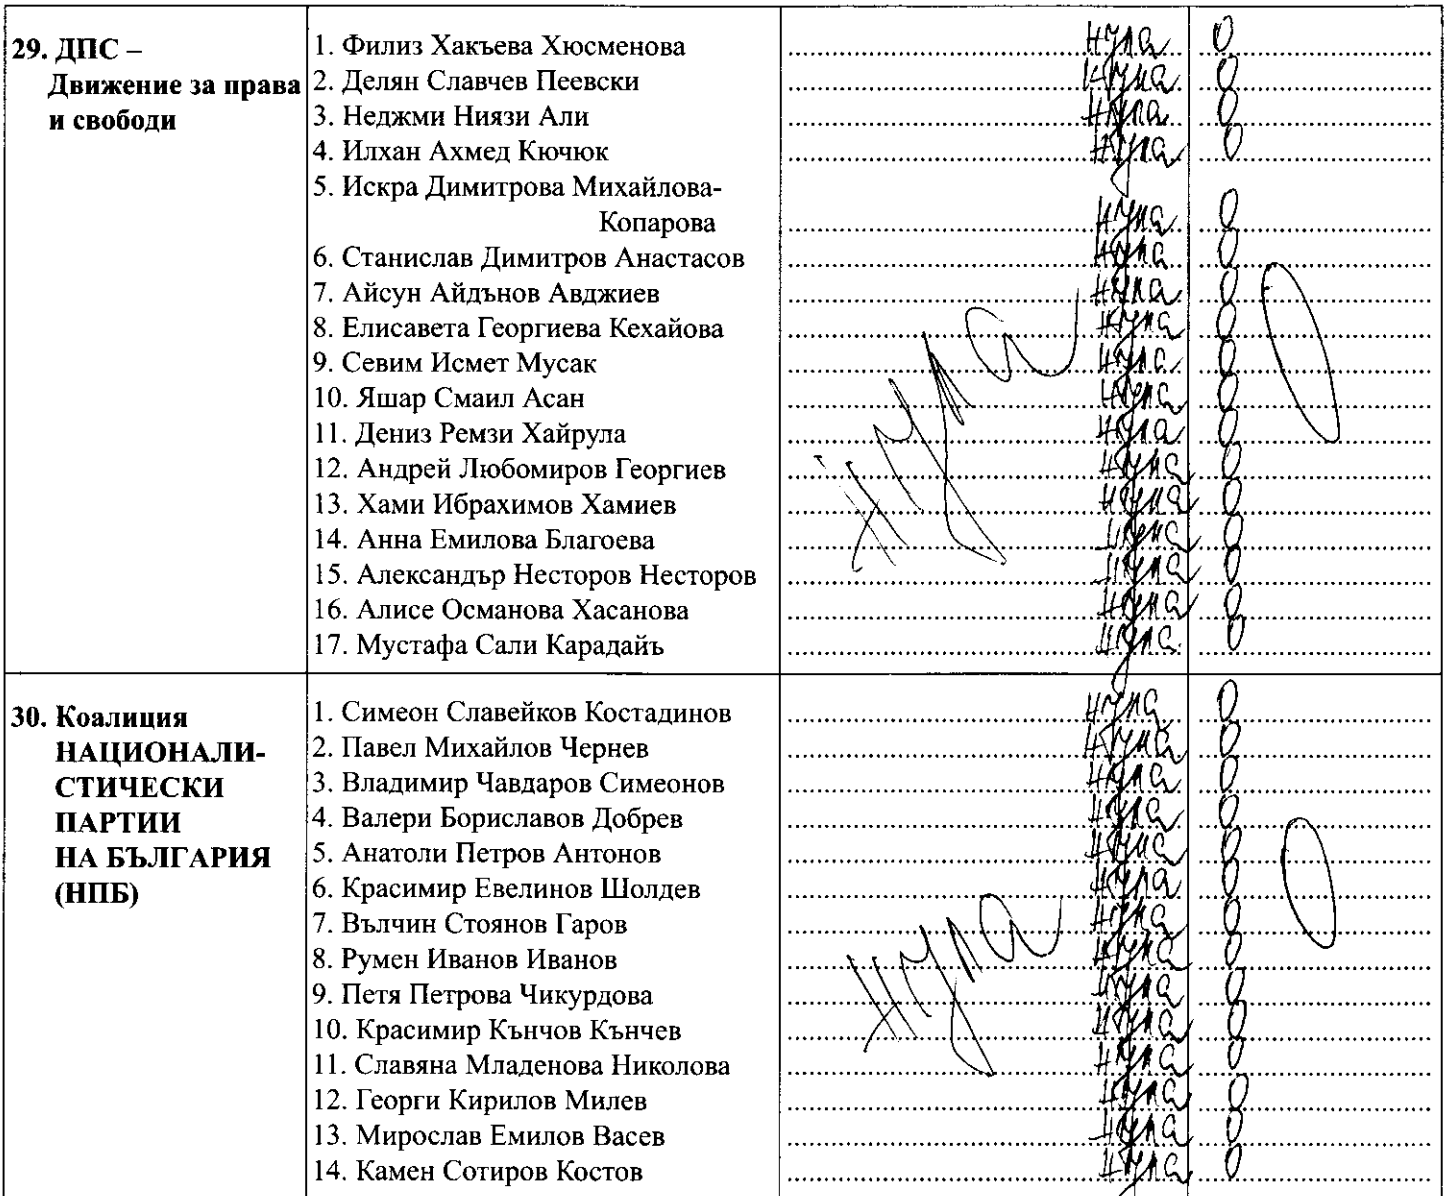 29. ДПС –
Движение за права
и свободи
1. Филиз Хакъева Хюсменова нула 0
2. Делян Славчев Пеевски нула 0
3. Неджми Ниязи Али нула 0
4. Илхан Ахмед Кючюк нула 0
5. Искра Димитрова Михайлова-
Копарова нула 0
6. Станислав Димитров Анастасов нула 0
7. Айсун Айдънов Авджиев нула 0
8. Елисавета Георгиева Кехайова нула 0
9. Севим Исмет Мусак нула 0
10. Яшар Смаил Асан нула 0
11. Дениз Ремзи Хайрула нула 0
12. Андрей Любомиров Георгиев нула 0
13. Хами Ибрахимов Хамиев нула 0
14. Анна Емилова Благоева нула 0
15. Александър Несторов Несторов нула 0
16. Алисе Османова Хасанова нула 0
17. Мустафа Сали Карадайъ нула 0
нула 0
30. Коалиция
НАЦИОНАЛИ-
СТИЧЕСКИ
ПАРТИИ
НА БЪЛГАРИЯ
(НПБ)
1. Симеон Славейков Костадинов нула 0
2. Павел Михайлов Чернев нула 0
3. Владимир Чавдаров Симеонов нула 0
4. Валери Бориславов Добрев нула 0
5. Анатоли Петров Антонов нула 0
6. Красимир Евелинов Шолдев нула 0
7. Вълчин Стоянов Гаров нула 0
8. Румен Иванов Иванов нула 0
9. Петя Петрова Чикурдова нула 0
10. Красимир Кънчов Кънчев нула 0
11. Славяна Младенова Николова нула 0
12. Георги Кирилов Милев нула 0
13. Мирослав Емилов Васев нула 0
14. Камен Сотиров Костов нула 0
нула 0